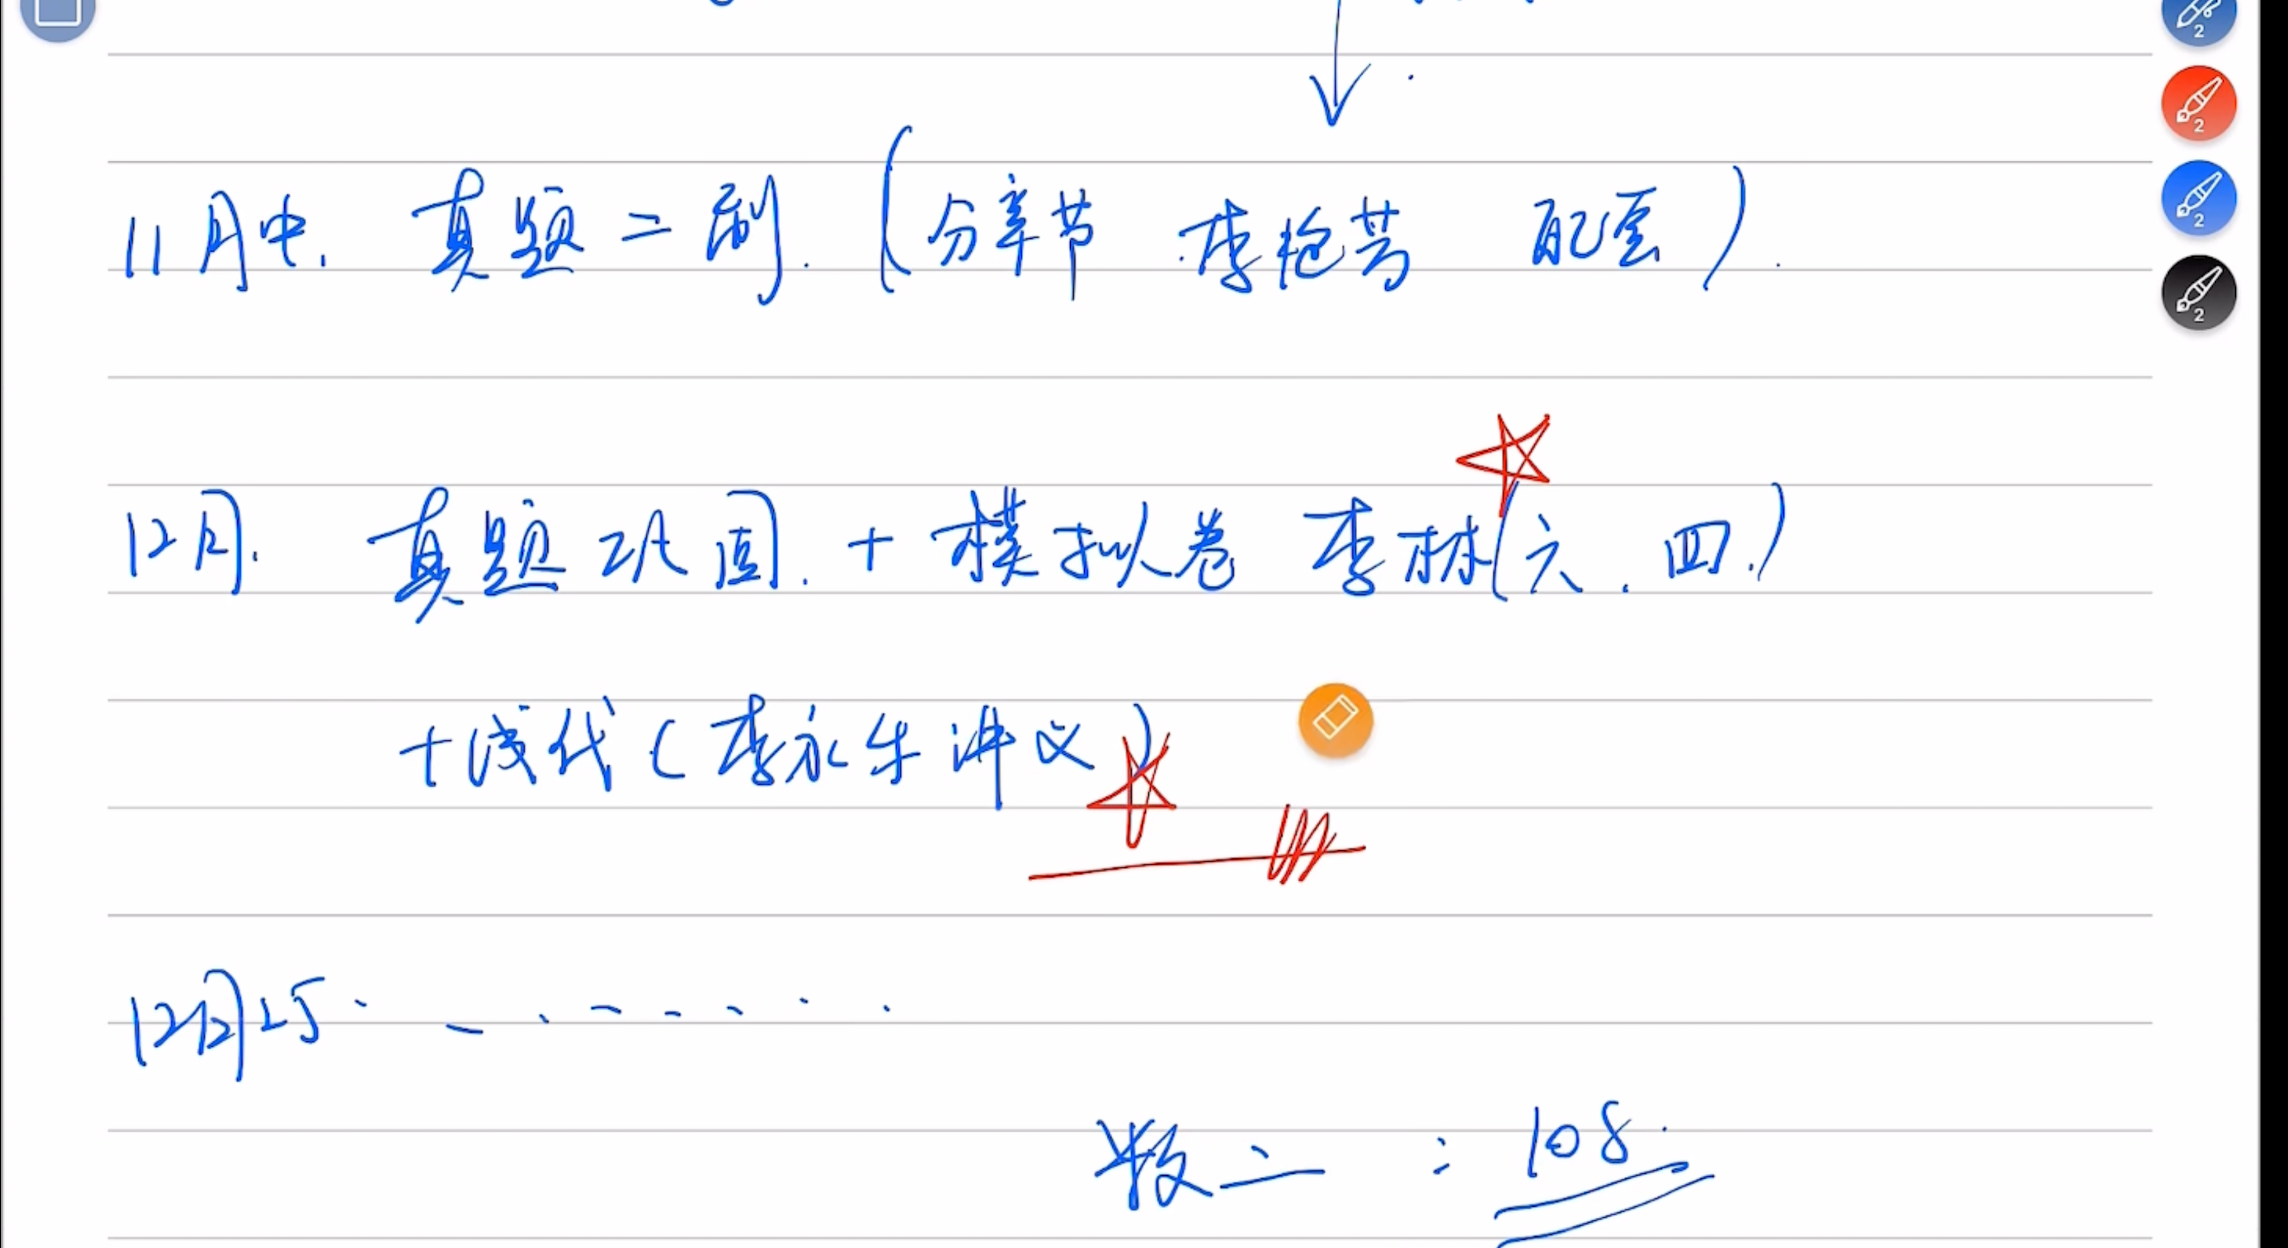 11月中. 真题二刷. (分章节 李艳芳 配套).
12月. 真题巩固. + 模拟卷 李林(六. 四.)
+线代(李永乐讲义)
12月25.
数二 : 108.
2
2
2
2